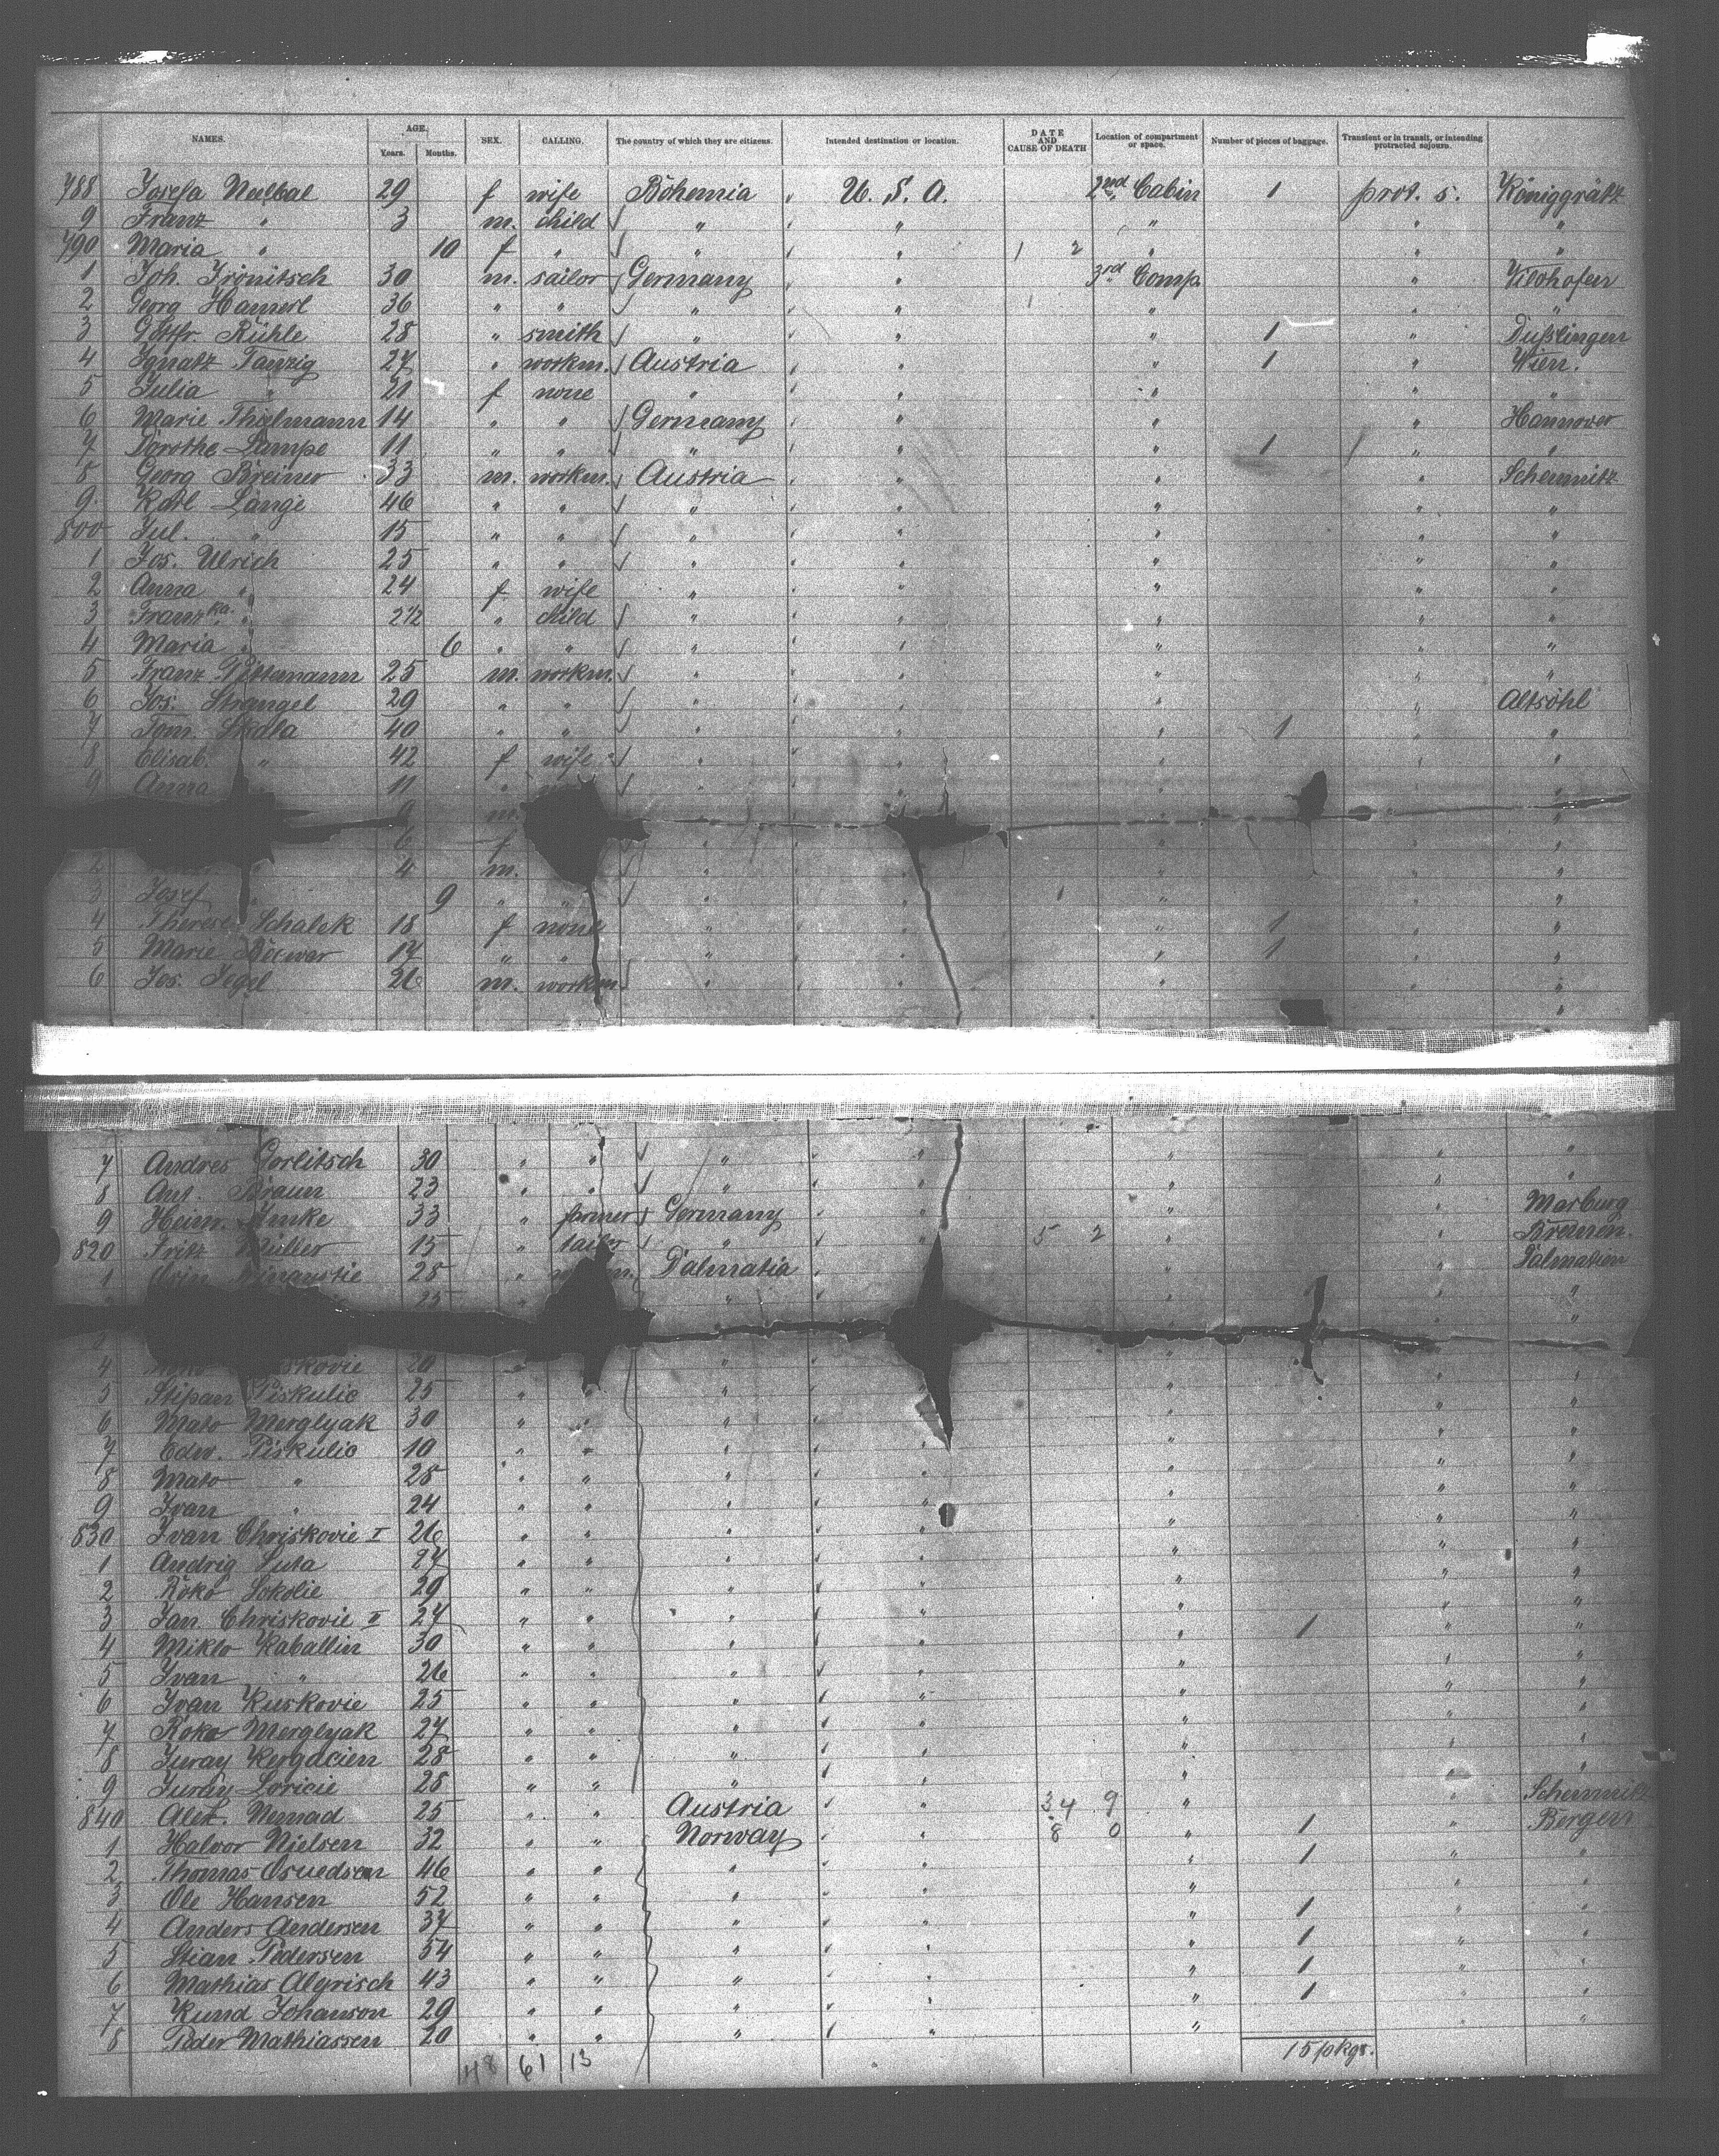 NAMES. AGE. Years. Months. SEX. CALLING. The country of which they are citizens. Intended destination or location. DATE AND CAUSE OF DEATH Location of compartment or space. Number of pieces of baggage. Transient or in transit, or intending protracted sojourn.
788 Josefa 29 f wife Bohemia U. S. A. 2nd Cabin 1 prot. s. Königgrätz
9 Franz " 3 m. child " " " " "
790 Maria " 10 f " " " 1 2 " " "
1 Joh. 30 m. sailor Germany " 3rd Comp. " Vilshofen
2 Georg Hamerl 36 " " " " " " "
3 Gottfr. Rühle 28 " smith " " " 1 " Dußlingen
4 Ignatz Tanzig 27 " workm. Austria " " 1 " Wien.
5 Julia " 21 f none " " " " "
6 Marie Thielmann 14 " " Germany " " " Hannover
7 Dorothe Lampe 11 " " " " " 1 " "
8 Georg Breiner 33 m. workm. Austria " " " Schemnitz
9 Karl Lange 46 " " " " " " "
800 Jul. " 15 " " " " " " "
1 Jos. Ulrich 25 " " " " " " "
2 Anna " 24 f wife " " " " "
3 Franzka. " 2 1/2 " child " " " " "
4 Maria " 6 " " " " " " "
5 Franz 25 m. workm. " " " " "
6 Jos. Strangel 29 " " " " " " Altsohl
7 Tom. Skala 40 " " " " " 1 " "
8 Elisab. " 42 f wife " " " " "
9 Anna 11 " " " " " "
m. " "
6 f " " " "
2 4 m. " " " " "
3 Josef " 9 " " " " " " "
4 Therese Schalek 18 f none " " " 1 " "
5 Marie 17 " " " " " 1 " "
6 Jos. Jegel 26 m. workm " " " " "
7 Andres Gorlitsch 30 " " " " " " "
8 Ant. Braun 23 " " " " " " "
9 Heinr. Imke 33 " farmer Germany " " " Marburg
820 Fritz Müller 15 " tailor " " 5 2 " " Bremen.
1 28 " Dalmatia " " " Dalmatien
25 " " " "
4 skovic 20 " " " " " "
5 Stipan Piskulic 25 " " " " " " "
6 Mato Merglyak 30 " " " " " " "
7 Edw. Piskulic 10 " " " " " " "
8 Mato " 28 " " " " " " "
9 Ivan " 24 " " " " " " "
830 Ivan Chriskovic I 26 " " " " " " "
1 Andrig Suta 27 " " " " " " "
2 Roko Sokolic 29 " " " " " " "
3 Jan. Chriskovic II 27 " " " " " 1 " "
4 Miklo Kaballin 30 " " " " " " "
5 Ivan " 26 " " " " " " "
6 Ivan Kuskovic 25 " " " " " " "
7 Roko Merglyak 27 " " " " " " "
8 Juray 28 " " " " " " "
9 Juray Loricic 28 " " " " " " Schemnitz
840 Alex. Nemad 25 " " Austria " 34 9 " 1 " Bergen
1 Halvor Nielsen 32 " " Norway " 8 0 " 1 " "
2 Thomas 46 " " " " " " "
3 Ole Hansen 52 " " " " " 1 " "
4 Anders Andersen 37 " " " " " 1 " "
5 Stian Pedersen 54 " " " " " 1 " "
6 Mathias 43 " " " " " 1 " "
7 Kund Johanson 29 " " " " " " "
8 Peder Mathiassen 20 " " " "
15 pkgs.
48 61 13